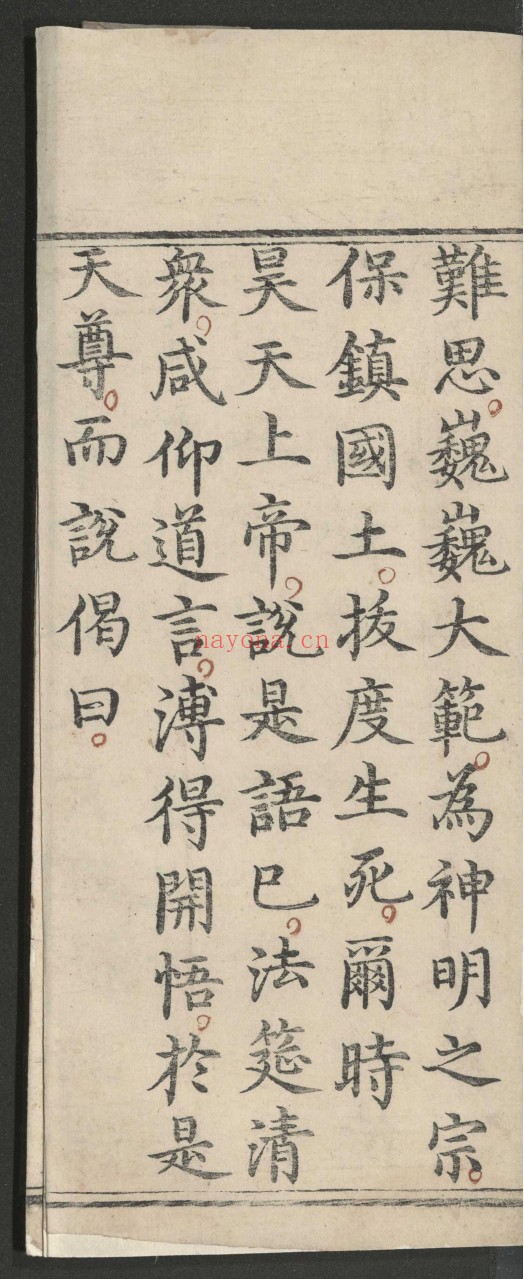 難思。巍巍大範。為神明之宗。
保鎮國土。拔度生死。爾時
昊天上帝。說是語已。法筵清
衆。咸仰道言。溥得開悟。於是
天尊。而說偈曰。
nayona.cn